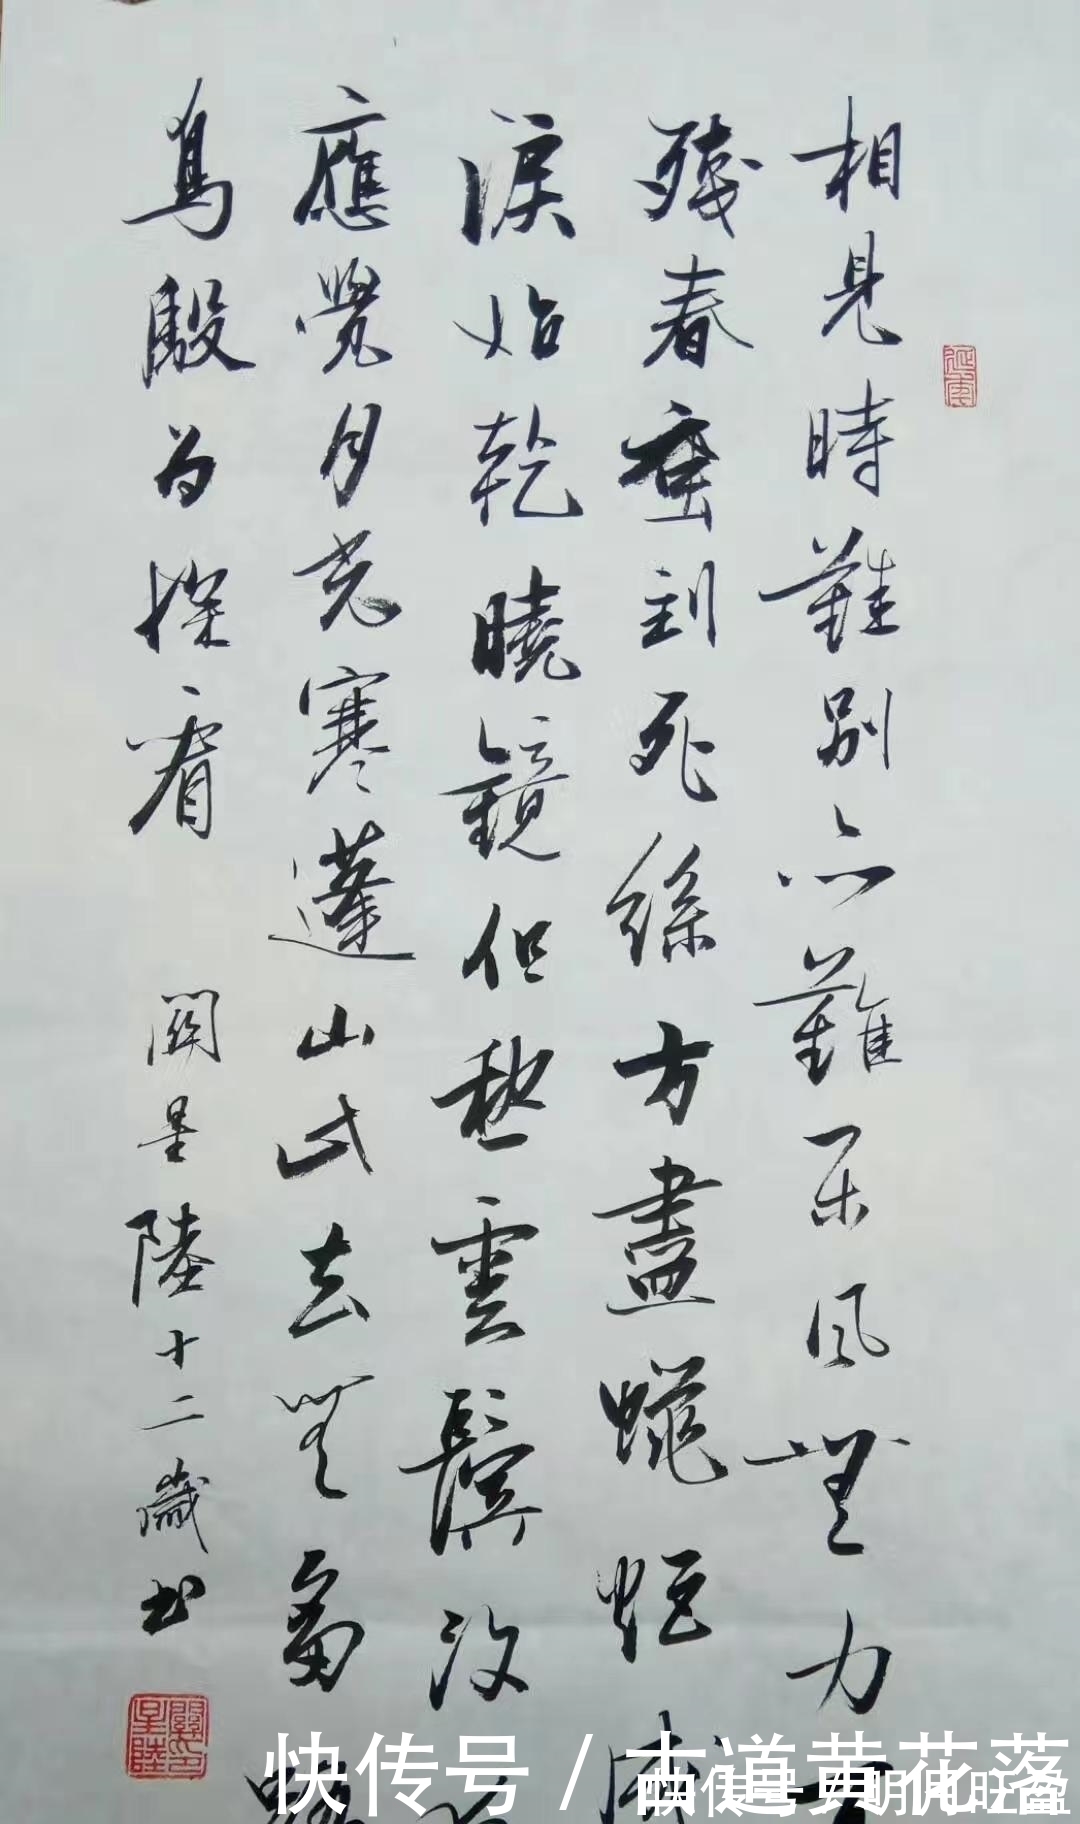 相見時難別亦難東風無力
殘春蚕到死絲方盡蠟炬成
淚始乾曉鏡但愁雲鬢改
應覺月光寒蓬山此去無多路
鳥殷為探看 關星陸十二歲書
快传号 / 古道黄花落